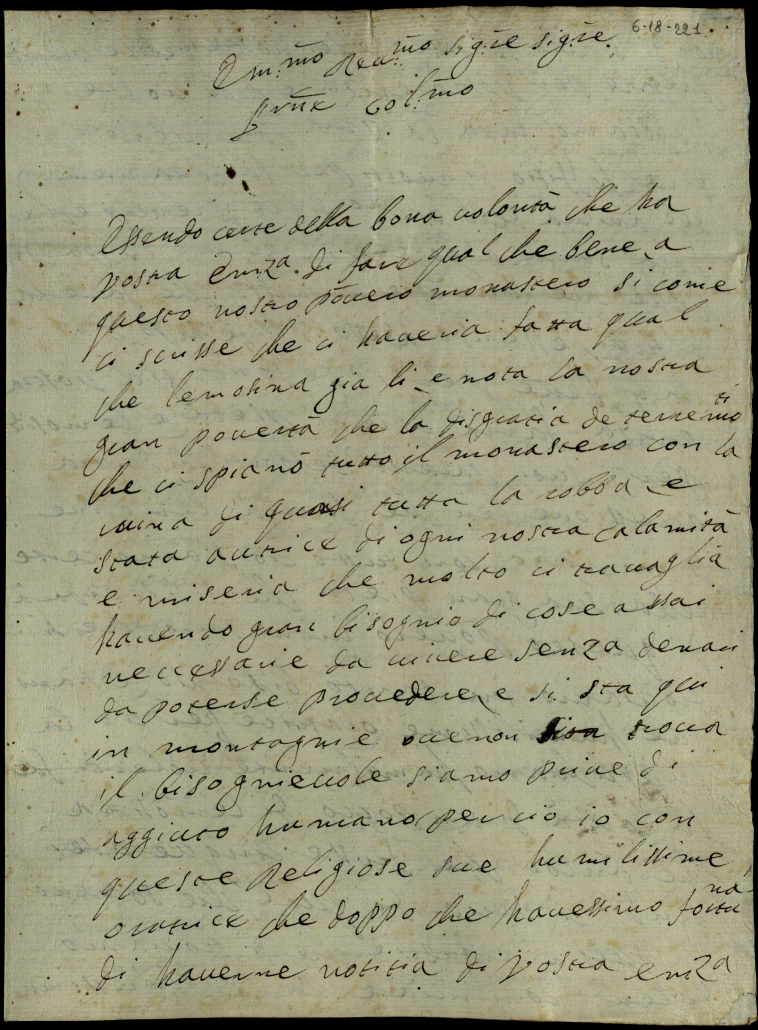 6-18-221.
Em.mo Reu.mo sig.re sig.re
prne Col.mo
Essendo certe della bona uolontà che ha
vostra Emza di fare qual che bene a
questo nostro pouero monastero si come
ci scrisse che ci haueria fatta qual
che lemosina gia li e nota la nostra
gran pouertà che la disgratia de terremoti
che ci spianò tutto il monastero con la
ruina di quasi tutta la robba e
stata autrice di ogni nostra calamità
e miseria che molto ci trauaglia
hauendo gran bisognio di cose assai
neccessarie da uiuere senza denari
da poterse prouedere e si sta qui
in montagnie oue non si troua
il bisognieuole siamo priue di
aggiuto humano per cio io con
queste Religiose sue humilissime
oratrice che doppo che hauessimo fortuna
di hauerne notitia di vostra emza